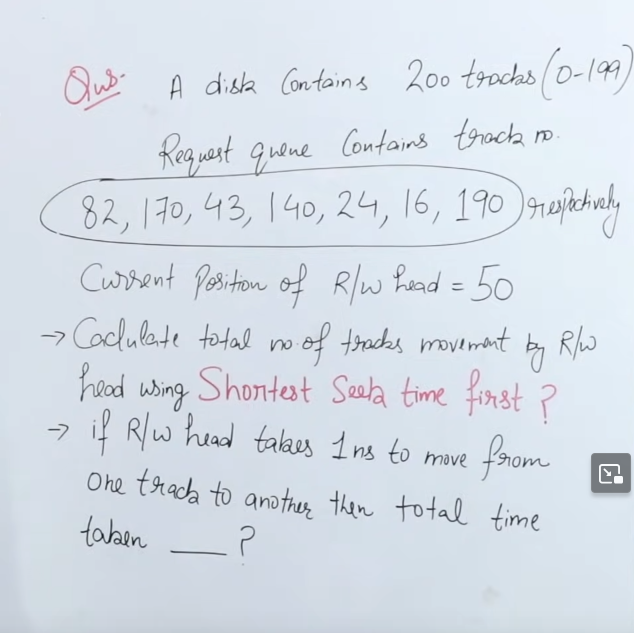 Qus. A disk Contains 200 tracks (0-199)
Request queue Contains track no.
82, 170, 43, 140, 24, 16, 190 respectively
Current Position of R/W head = 50
→ Caclulate total no. of tracks movement by R/W
head using Shortest Seek time first ?
→ if R/W head takes 1 ns to move from
One track to another then total time
taken ___ ?